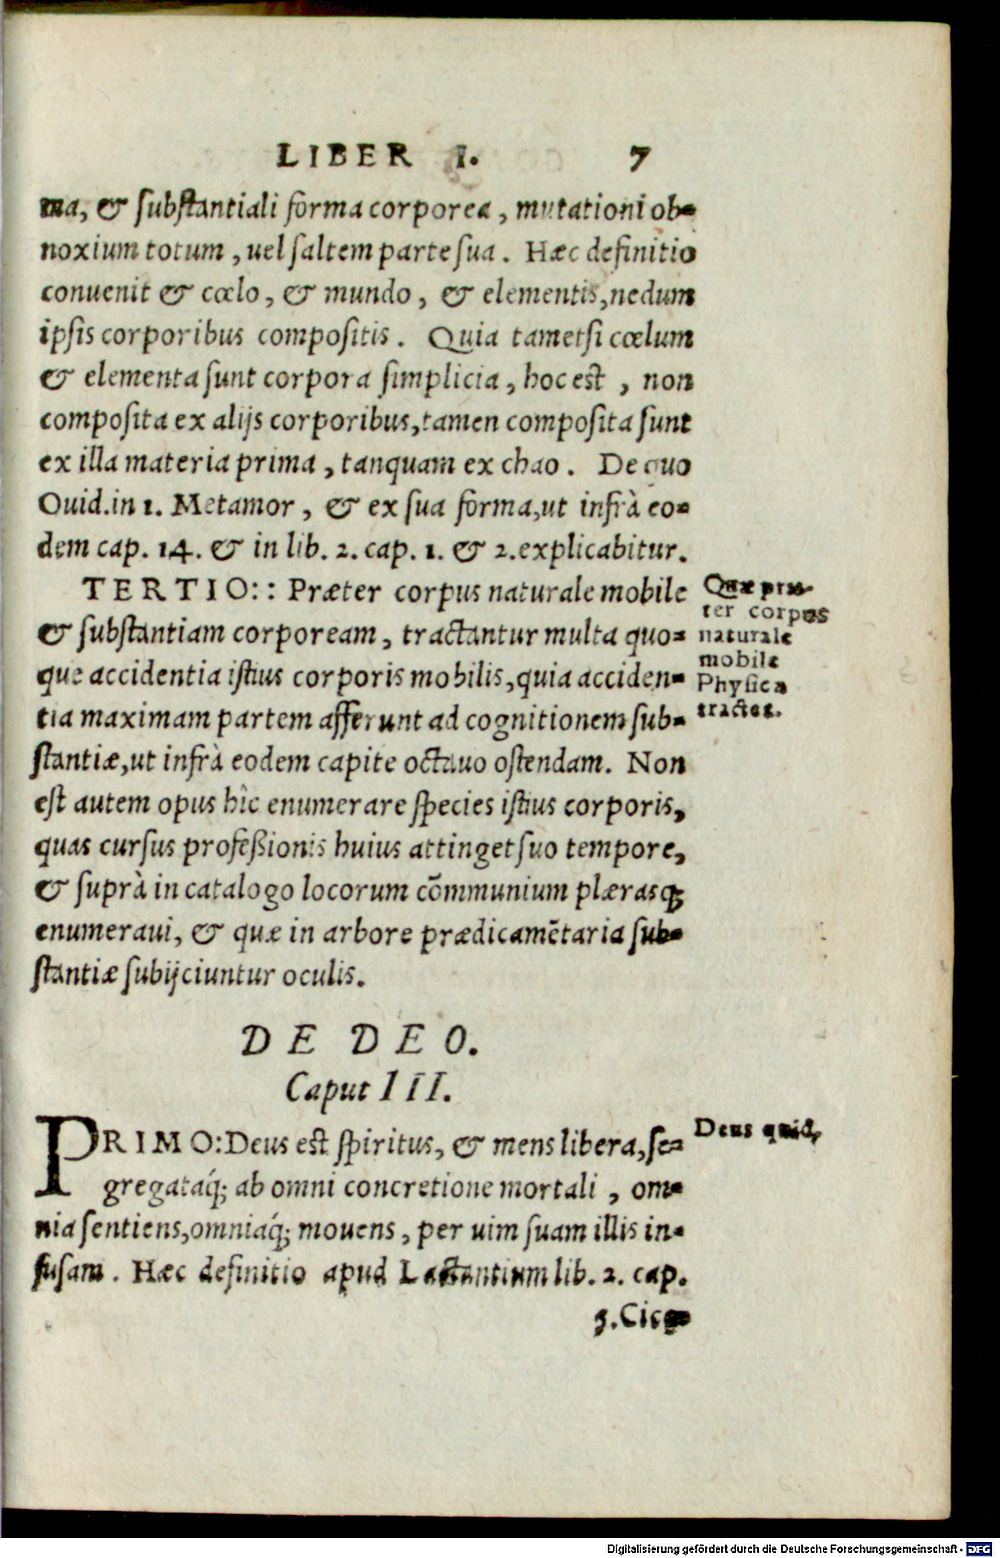 LIBER I. 7
ma, & substantiali forma corporea, mutationi ob-
noxium totum, uel saltem parte sua. Hæc definitio
conuenit & cœlo, & mundo, & elementis, nedum
ipsis corporibus compositis. Quia tametsi cœlum
& elementa sunt corpora simplicia, hoc est, non
composita ex alijs corporibus, tamen composita sunt
ex illa materia prima, tanquam ex chao. De quo
Ouid. in 1. Metamor, & ex sua forma, ut infrà eo-
dem cap. 14. & in lib. 2. cap. 1. & 2. explicabitur.
TERTIO:: Præter corpus naturale mobile
& substantiam corpoream, tractantur multa quo-
que accidentia istius corporis mobilis, quia acciden-
tia maximam partem afferunt ad cognitionem sub-
stantiæ, ut infrà eodem capite octauo ostendam. Non
est autem opus hîc enumerare species istius corporis,
quas cursus profeßionis huius attinget suo tempore,
& suprà in catalogo locorum cōmmunium plærasq;
enumeraui, & quæ in arbore prædicamētaria sub-
stantiæ subijciuntur oculis.
Quæ præ-
ter corpus
naturale
mobile
Physica
tractet.
DE DEO.
Caput III.
PRIMO: Deus est spiritus, & mens libera, se-
gregataq́; ab omni concretione mortali, om-
nia sentiens, omniaq́; mouens, per uim suam illis in-
fusam. Hæc definitio apud Lactantium lib. 2. cap.
5. Cice-
Deus quid,
Digitalisierung gefördert durch die Deutsche Forschungsgemeinschaft - DFG